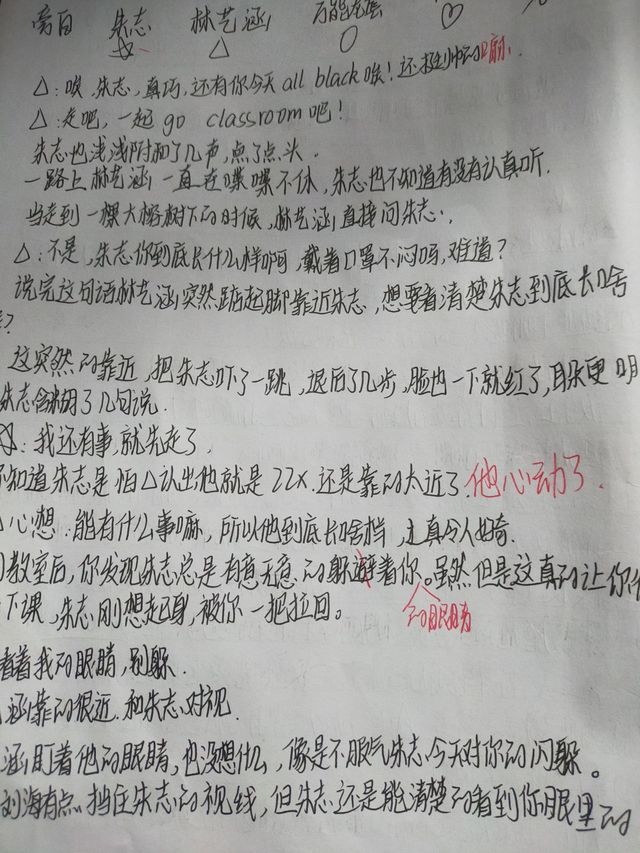 旁白 朱志 林艺涵 万能龙套 ♡
☆ △ ○
△:唉,朱志,真巧,还有你今天all black唉!还挺帅的嘛.
△:走吧,一起go classroom吧!
朱志也浅浅附和了几声,点了点头.
一路上林艺涵一直在喋喋不休,朱志也不知道有没有认真听.
当走到一棵大杨树下的时候,林艺涵直接问朱志:,
△:不是,朱志你到底长什么样啊,戴着口罩不闷吗,难道?
说完这句话林艺涵突然踮起脚靠近朱志,想要看清楚朱志到底长啥
?
这突然的靠近,把朱志吓了一跳,退后了几步,脸也一下就红了,耳朵更明
朱志含糊了几句说.
☆:我还有事,就先走了,
不知道朱志是怕△认出他就是ZZX.还是靠的太近了.他心动了.
心想:能有什么事嘛,所以他到底长啥样,主真令人好奇.
教室后,你发现朱志总是有意无意的躲避着你的眼睛。虽然但是这真的让你
下课,朱志刚想起身,被你一把拉回。
看着我的眼睛,别躲.
涵靠的很近.和朱志对视.
涵盯着他的眼睛,也没想什么,像是不服气朱志今天对你的闪躲。
刘海有点挡住朱志的视线,但朱志还是能清楚的看到你眼里的